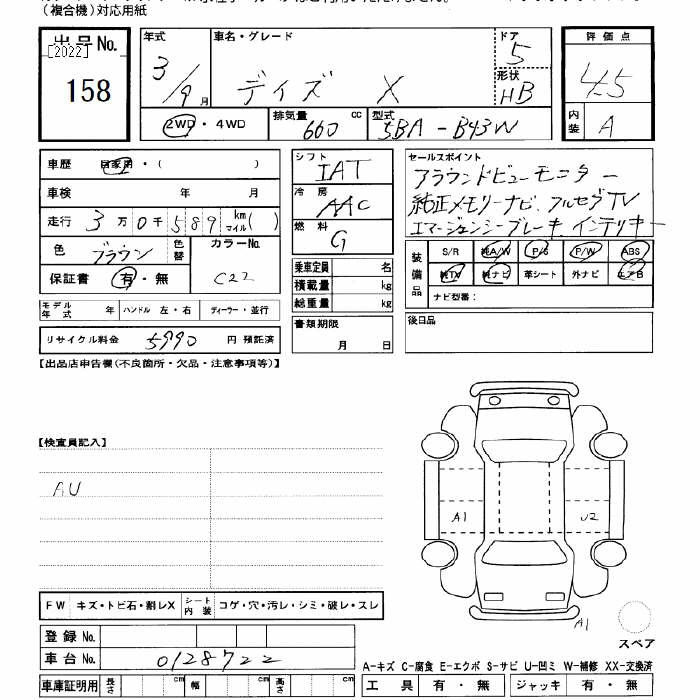 （複合機）対応用紙
出品No. [2022] 158
年式 3/9月 車名・グレード デイズ X ドア 5 形状 HB
2WD・4WD 排気量 660 cc 型式 5BA-B43W
評価点 4.5
内装 A
車歴 自家用・（ ）
車検 年 月
走行 3万0千589 km マイル( )
色 ブラウン 色替 カラーNo. C22
保証書 有・無
モデル年式 年 ハンドル 左・右 ディーラー・並行
リサイクル料金 5990 円 預託済
シフト IAT
冷房 AAC
燃料 G
乗車定員 名
積載量 kg
総重量 kg
書類期限 月 日
セールスポイント
アラウンドビューモニター
純正メモリーナビ、フルセグTV
エマージェンシーブレーキ、インテリキー
装備品 S/R 純A/W P/S P/W ABS
純TV 純ナビ 革シート 外ナビ エアB
ナビ型番：
後日品
【出品店申告欄(不良箇所・欠品・注意事項等)】
【検査員記入】
AU
A1 U2
A1
スペア
FW キズ・トビ石・割レX シート内装 コゲ・穴・汚レ・シミ・破レ・スレ
登録No.
車台No. 0128722
車庫証明用 長さ cm 幅 cm 高さ cm
A-キズ C-腐食 E-エクボ S-サビ U-凹ミ W-補修 XX-交換済
工具 有・無 ジャッキ 有・無